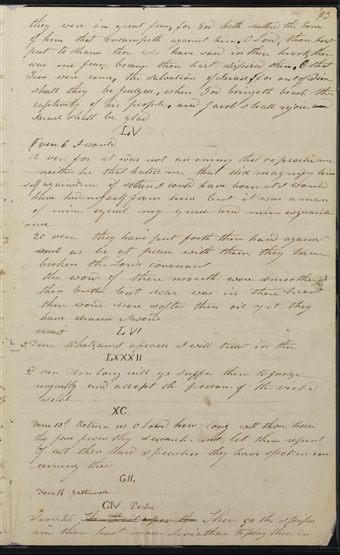 93
they were in great fear, for God hath scattered the bones
of him that Encampeth against him, O Lord, thou hast
put to shame thos who have said in there hearts there
was no fear because thou hast dispised them, O that
Zion were come, the salvation of Israel, for out of Zion
shall they be judged, when God bringeth back the
captivity of his people, and Jacob shall rejoice and
Israel shall be glad
LV
from 6 I would
12 ver for it was not an enimy that reproached me
neither he that hated me that did magnify him
self against me if so then I could have born it I would
have hid myself from him but it was a man
of mine equil my guide and mine acquaint
ance
20 vern they have put forth there hand against
such as be at peace with them they have
broken the Lords covenant
the words of there mouth were smoother
than butter but war was in there heart
there words were softer then oil yet they
have drawn Swords
LVI
3 Vern What am I afraid I will trust in the
LXXXII
2 ver How long will ye suffer them to judge
unjustly and accept the persons of the wicked
selah
XC.
Vern 13t Return us O Lord how long will thou hide
thy face from thy servants and let them repent
of all there Hard speaches they have spoken con
cerning thee
CII.
Vern 18 gathered
CIV
26 There go the ships
thou hast made Leviathan to play there in